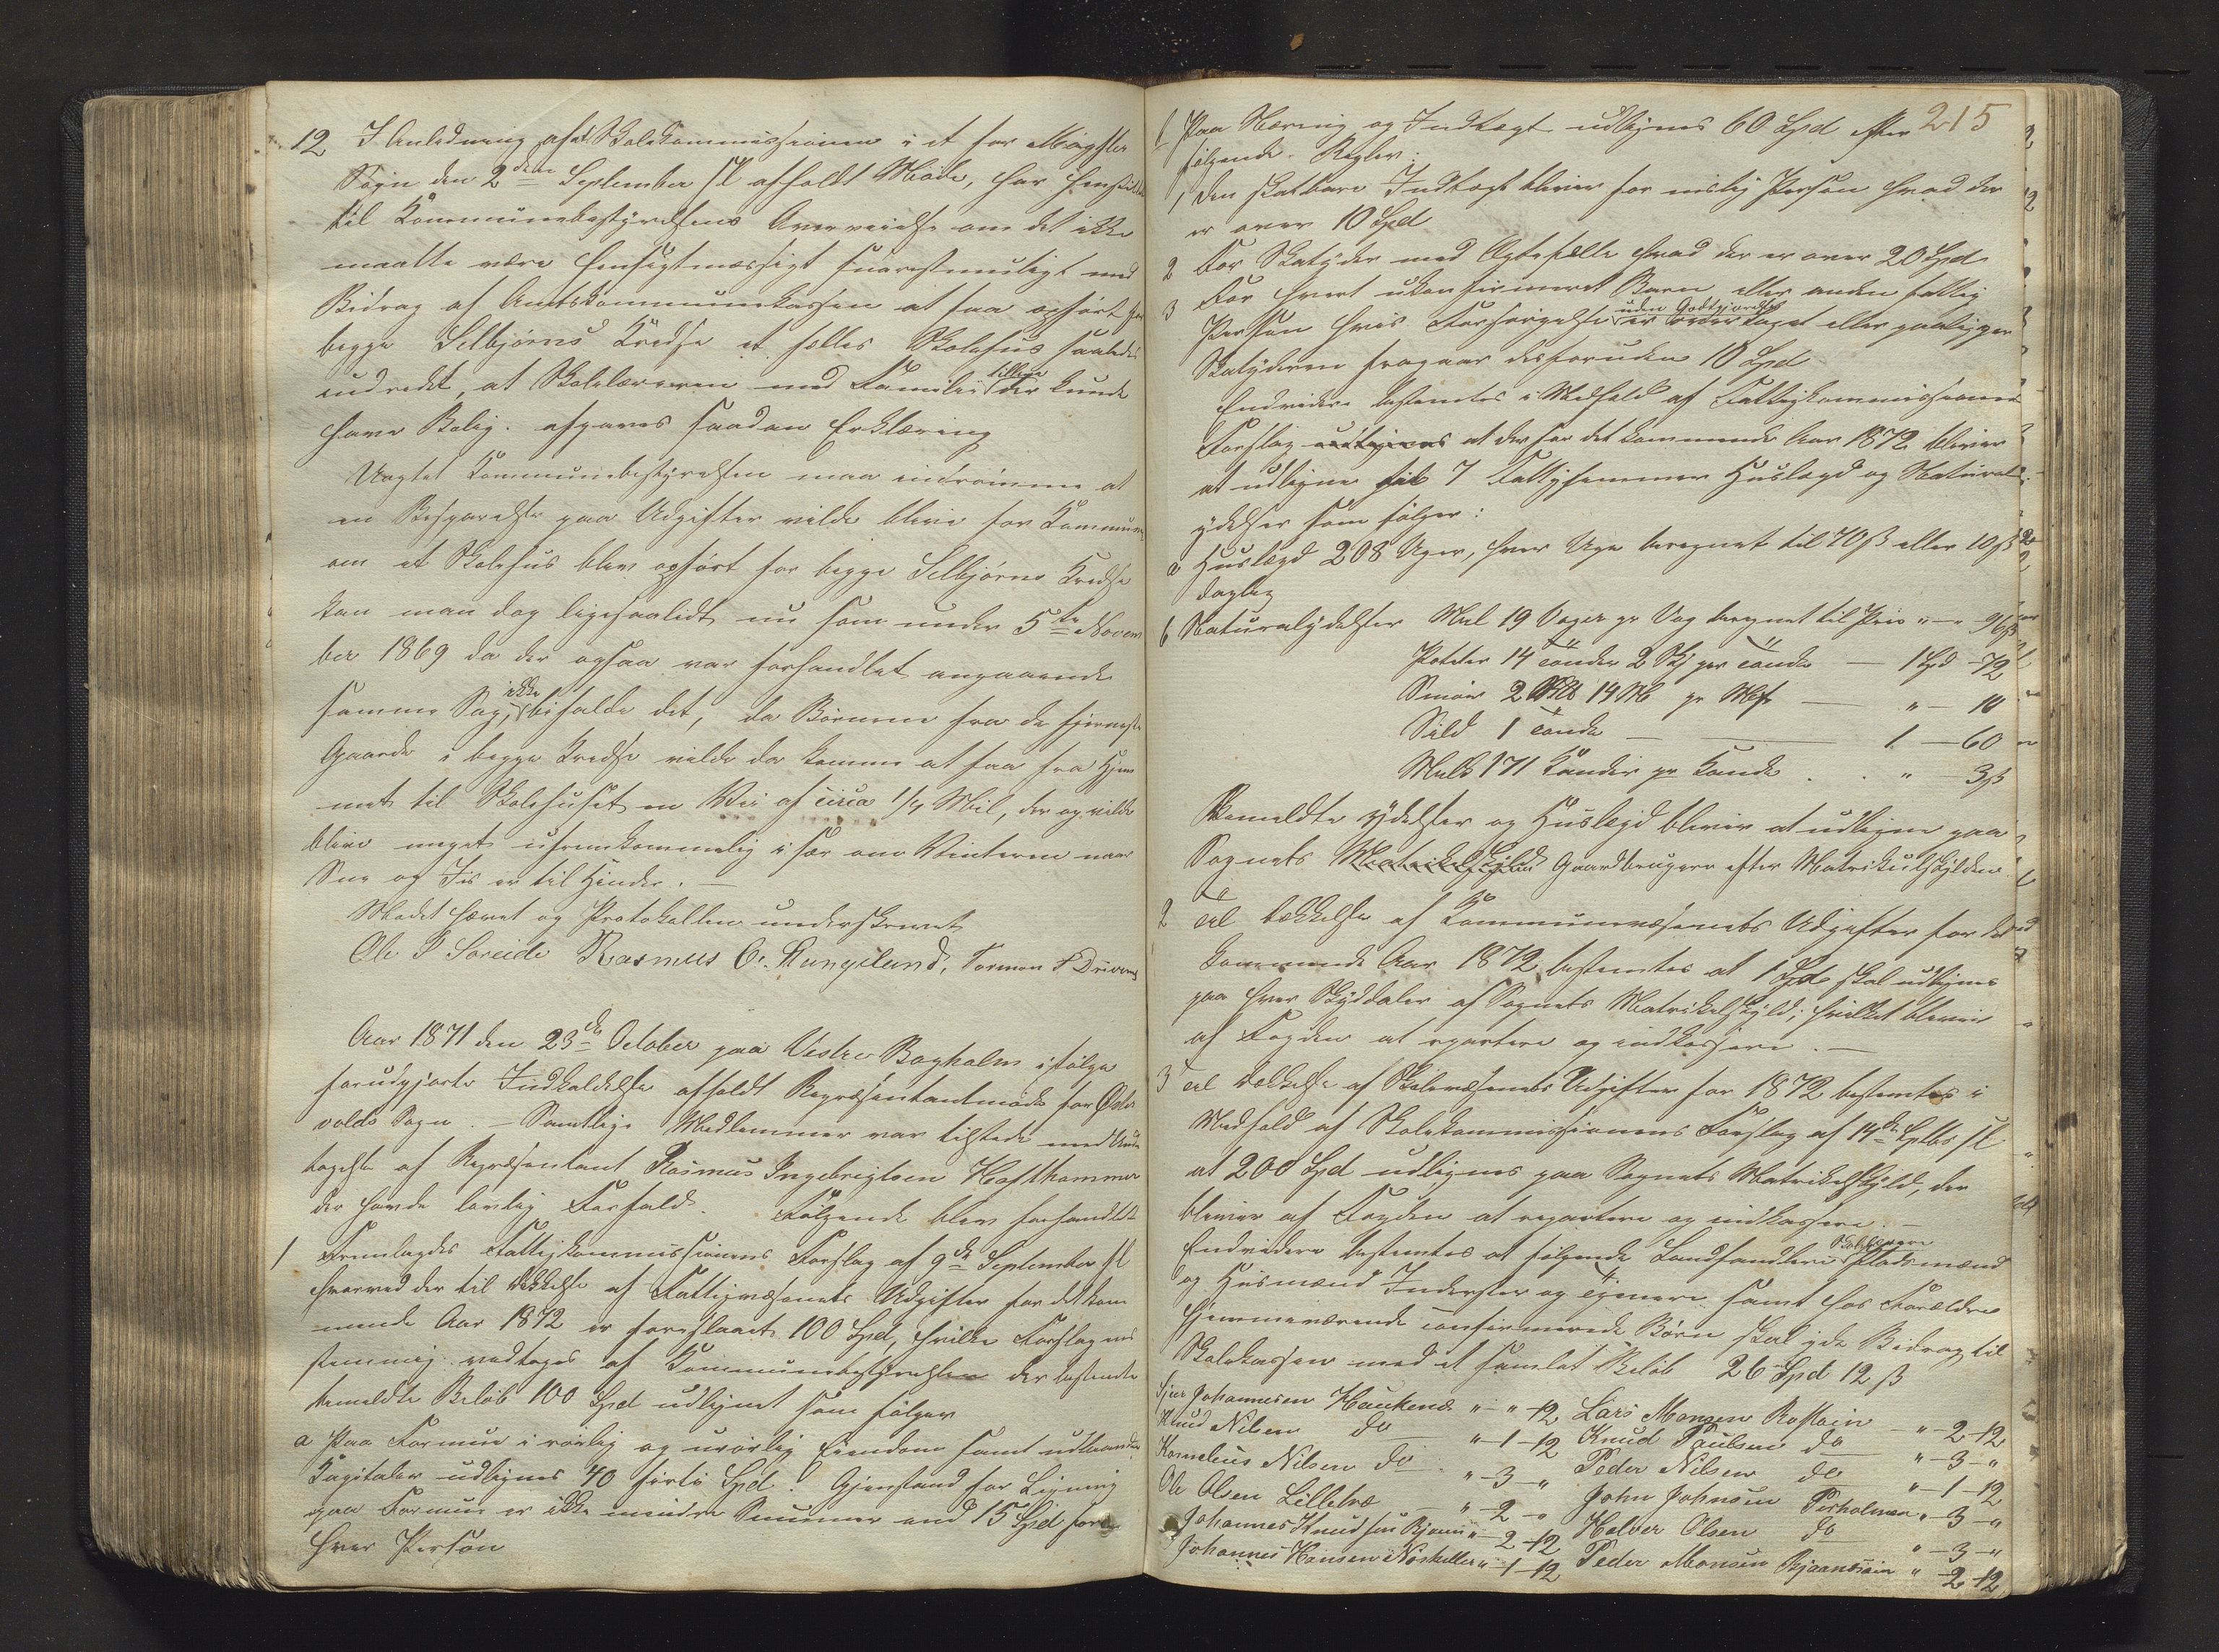 12 I Anledning af at Skolekommissionen i et for Møgster
Sogn den 2den September sl afholdt Møde, har henstillet
til Kommunebestyrelsens Overveielse om det ikke
maatte være hensigtmæssigt snarestmuligt med
Bidrag af Amtskommunekassen at faa opført for
begge Selbjørns Kredse et fælles Skolehus saaledes
indredet, at Skolelæreren med Familie tillige der kunde
have Bolig. afgaves saadan Erklæring
Uagtet Kommunebestyrelsen maa indrømme at
en Besparelse paa Udgifter vilde blive for Kommunen
om et Skolehus blev opført for begge Selbjørns Kredse
kan man dog ligesaalidt nu som under 5te Novem
ber 1869 da der ogsaa var forhandlet angaaende
samme Sag, ikke bifalde det, da Børnene fra de fjerneste
Gaarde i begge Kredse vilde da komme at faa fra Hjem
met til Skolehuset en Vei af circa 1/4 Mil, der og vilde
blive meget ufremkommelig især om Vinteren naar
Sne og Iis er til Hinder. —
Mødet hævet og Protokollen underskrevet
Ole P Søreide Rasmus O. Kungslund, Tormon S Drivenes
Aar 1871 den 23de October paa Vestre Bagholm ifølge
forudgjorte Indkaldelse afholdt Repræsentantmøde for Øst
volds Sogn. — Samtlige Medlemmer var tilstede med und
tagelse af Repræsentant Rasmus Ingebrigtsen Hafthammer
der havde lovlig Forfald. Følgende blev forhandlet
1 Fremlagdes Fattigkommissionens Forslag af 9de September sl
hvorved der til Dækkelse af Fattigvæsenets Udgifter for det kom
mende Aar 1872 er foreslaaet 100 Spd, hvilke Forslag een
stemmig vedtoges af Kommunebestyrelsen der bestemte
bemeldte Beløb 100 Spd udlignet som følger
a Paa Formue i rørlig og urørlig Eiendom samt udlaante
Kapitaler udlignes 40 førti Spd. Gjenstand for Ligning
paa Formue er ikke mindre Summer end 15 Spd for
hver Person
215
b Paa Næring og Indtægt udlignes 60 Spd efter
følgende Regler:
1 Den skatbare Indtægt bliver for enslig Person hvad der
er over 10 Spd
2 For Skatyder med Ægtefælle hvad der er over 20 Spd
3 For hvert ukonfirmeret Barn eller anden fattig
Person hvis Forsørgelse uden Godtgjørelse er overtaget eller paaligger
Skatyderen fragaar desforuden 10 Spd
Endvidere bestemtes i Medhold af Fattigkommissionens
Forslag at der for det kommende Aar 1872 bliver
at udligne til 7 Fattiglemmer Huslægd og Natural
ydelser som følger:
a Huslægd 208 Uger, hver Uge beregnet til 70 ß eller 10 ß
daglig
b Naturalydelser Mel 19 Voger pr Vog beregnet til Priis " — " 96 ß
Poteter 14 Tønder 2 Skj per Tønde — 1 Spd - 72
Smør 2 14 M pr — " — 10
Sild 1 Tønde — 1 — 60
Melk 171 Kander pr Kande . . " — 3 ß
Bemeldte ydelser og Huslægd bliver at udligne paa
Sognets Matrikelskyld Gaardbrugere efter Matrikulskylden.
2 Til Dækkelse af Kommunevæsenets Udgifter for det
kommende Aar 1872 bestemtes at 1 Spd skal udlignes
paa hver Skylddaler af Sognets Matrikelskyld; hvilket bliver
af Fogden at repartere og indkassere. —
3 Til Dækkelse af Skolevæsenets Udgifter for 1872 bestemtes i
Medhold af Skolekommissionens Forslag af 14de Septbr sl
at 200 Spd udlignes paa Sognets Matrikelskyld, der
bliver af Fogden at repartere og indkassere. —
Endvidere bestemtes at følgende Landhandlere Skolelærere Pladsmænd
og Husmænd Inderster og Tjenere samt hos Forældre
hjemmeværende confirmerede Børn skal yde Bidrag til
Skolekassen med et samlet Beløb 26 Spd 12 ß
Sjur Johannesen Haukenes " - " - 12 Lars Monsen Rostøen " - 2 - 12
Knud Nilsen do " - 1 - 12 Knud Paulsen do " - 3 - "
Kornelius Nilsen do " - 3 - " Peder Nilsen do " - 1 - 12
Ole Olsen Lilletræ " - 2 - " John Johnsen Perholmen " - 3 - "
Johannes Knudsen " - 2 - 12 Halver Olsen do " - 3 - "
Johannes Hansen " - 1 - 12 Peder Monsen Bjaanesøen " - 2 - 12